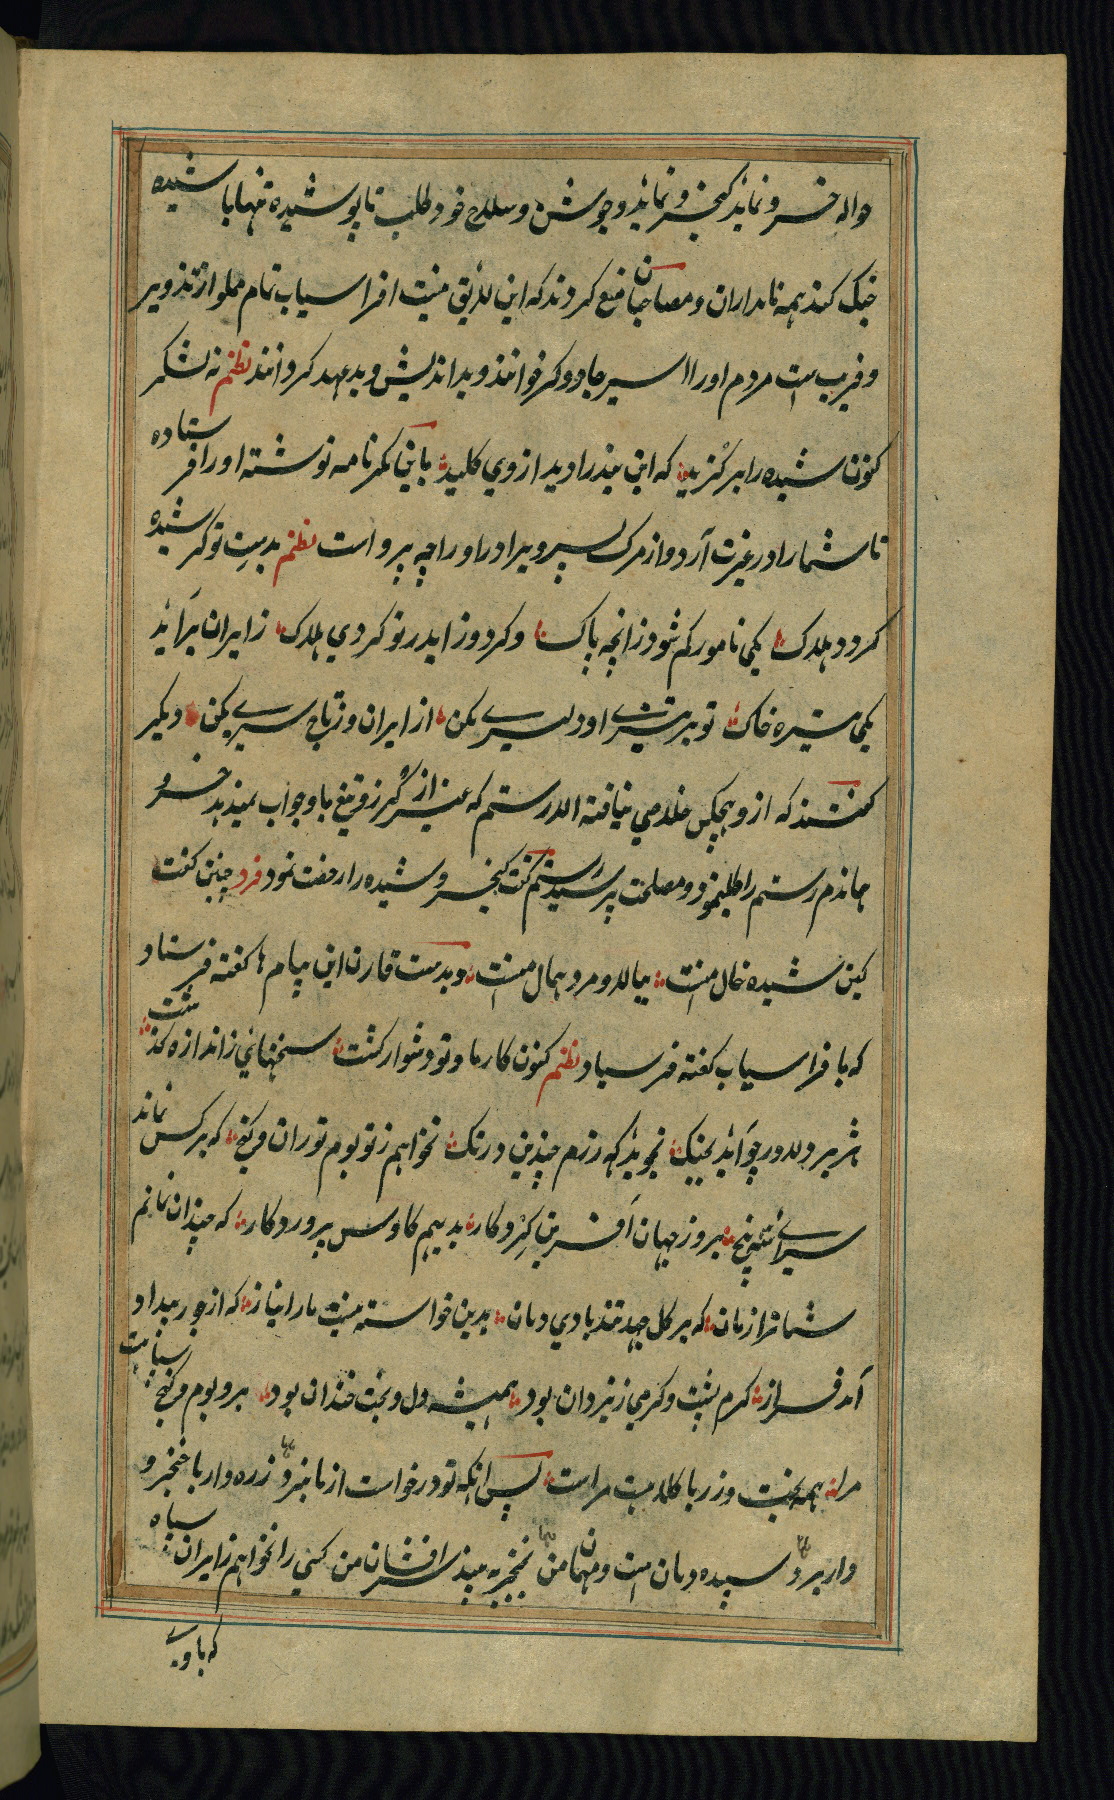 حواله خسرو نماید کیخسرو نماید و جوشن و سلاح خود طلب تا پوشیده تنها با شیده
جنک کند همه نامداران و مصاحبان منع کردند که این لایق نیست افراسیاب تمام مملو از تذویر
و فریب ست مردم او را اسیر جادوکر خوانند و بداندیش و بدعهد کردانند نظم نه لشکر
کنون شیده را برکزید که این بند را دید از وی کلید باین مکر نامه نوشته او را فرستاده
تا شما را در غیرت آرد و از مرک پسر و برادر او را چه پرواست نظم بدست تو کر شیده
کردد هلاک یکی نامور کم شود زانچه باک و کر دور ز ایدر تو کردی هلاک ز ایران برآید
یکی تیره خاک تو بر تیزی او دلیری مکن از ایران وز تاج سیری مکن دیکر
کفتند که ازو هیچکس خلاصی نیافته الا رستم که غیر از کرز و تیغ با و جواب نمیدهد خسرو
هماندم رستم را طلبنمود و مصلحت پرسید رستم کفت کیخسرو شیده را رخصت نمود فرد چنین کفت
کین شیده خال منست ببالا و مردی همال منست و بدست قارن این پیام ها کفته فرستاد
که با فراسیاب کفته فرستاد نظم کنون کار ما و تو دشوار کشت سخنهای ز اندازه کذشت
هژبر دلاور چو آید بجنک نجوید که رزم چندین درنک نخواهم ز تو بوم توران و کنج که بر کس نماند
سرای سپنج بروز جهان آفرین کردکار بدیهیم کاوس پروردکار که چندان نمانم
شما را زمان که بر کل جهد تند بادی دمان بدین خواسته نیست ما را نیاز که از جور بیداد
آمد فراز کرم پشت و کرمی ز یزدان بود همیشه دل و بخت خندان بود بر و بوم و کنج سپاهت
مراست همه تخت و زر با کلاهت مراست پس انکه تو درخواست از ما نبرد زره دار با خنجر و
دار برد سپیده دمان هست مهمان من بخنجر ببیند سرافشان من کسی را نخواهم ز ایران سپاه
که با وی